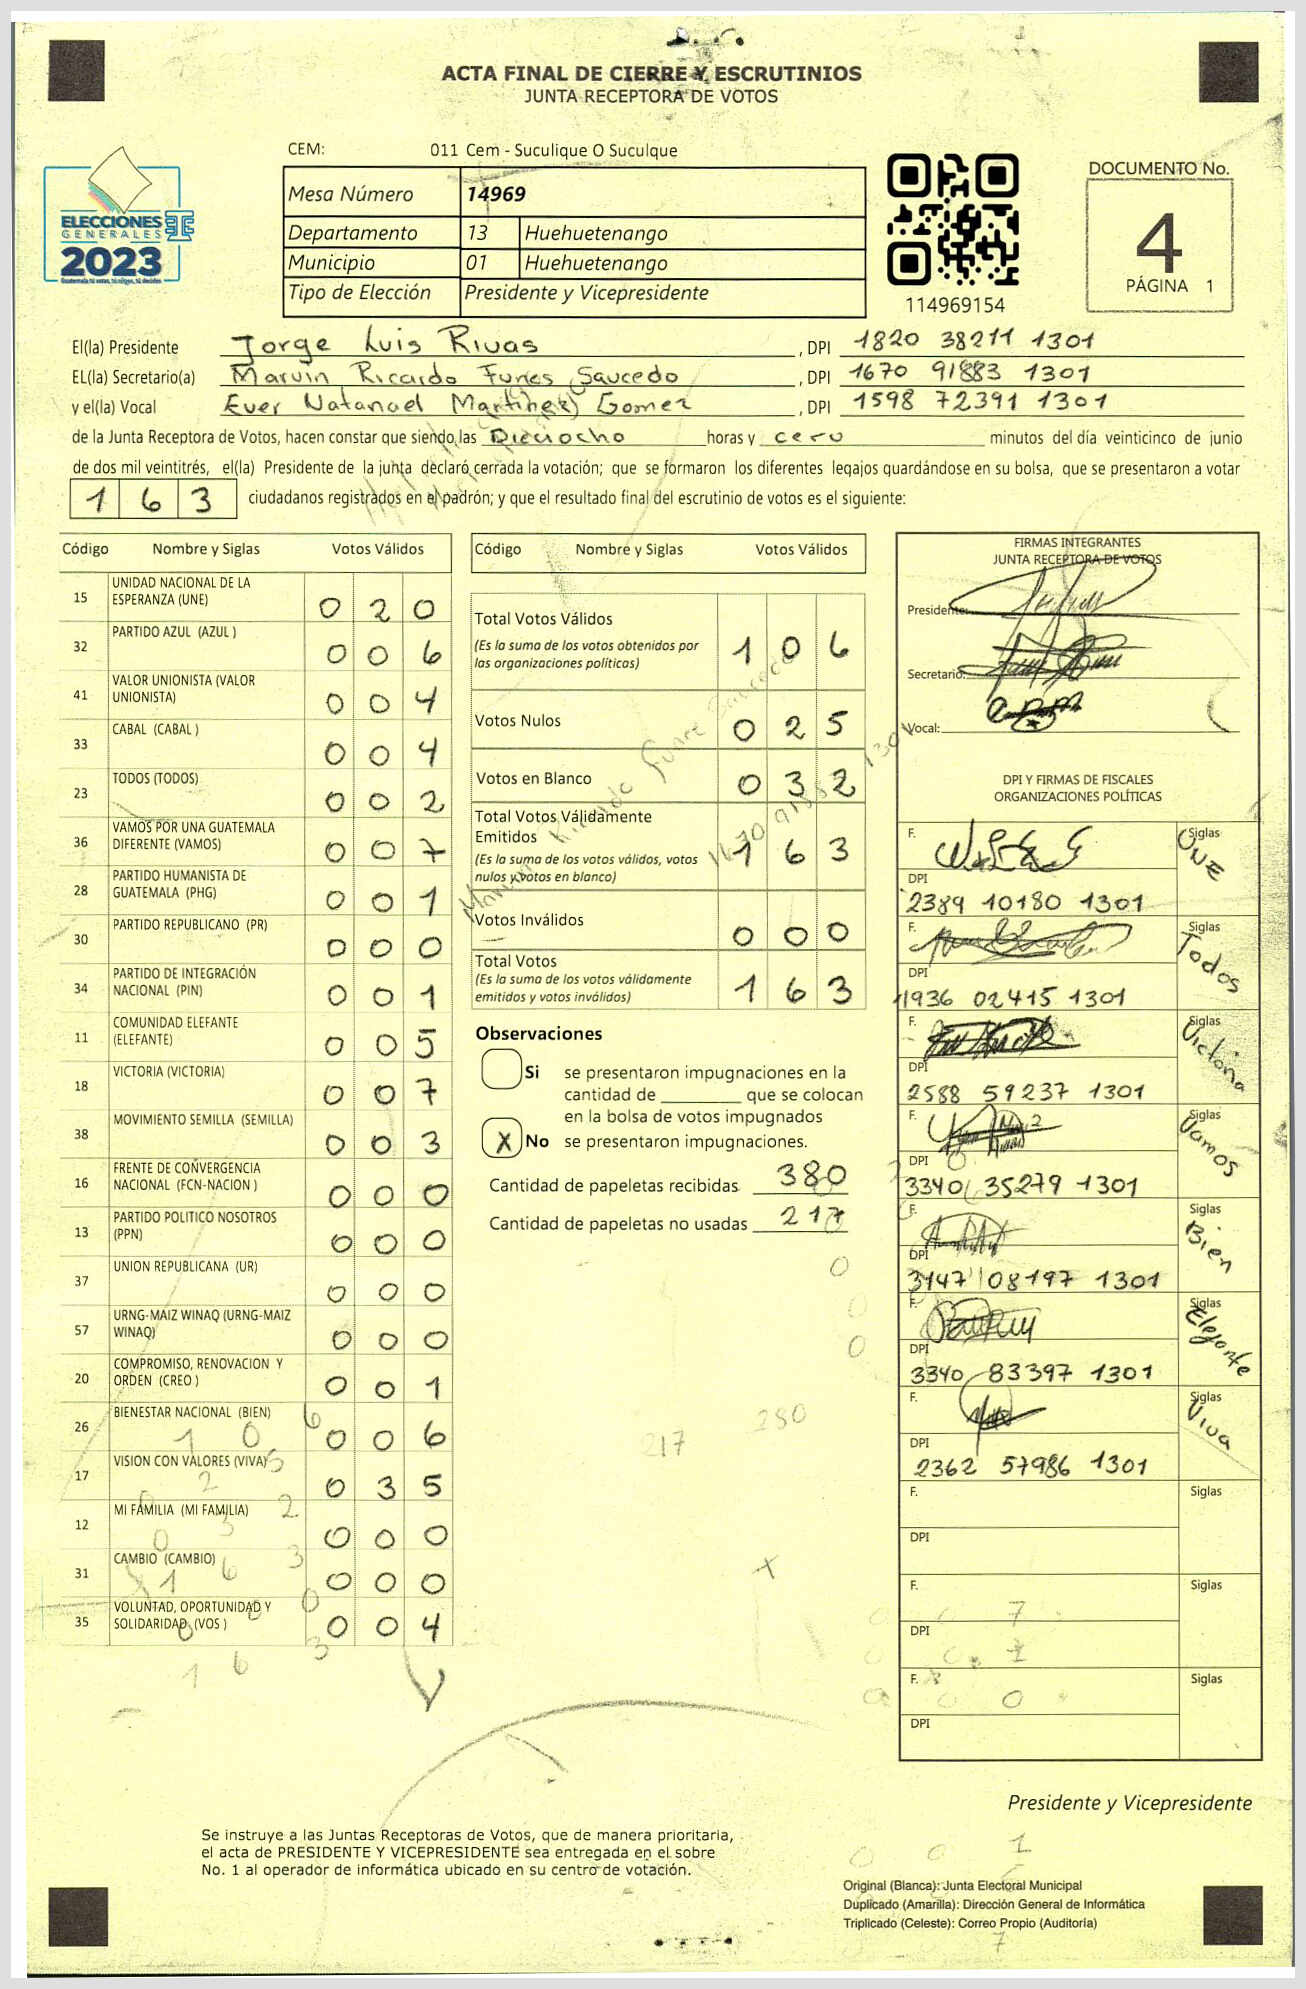 ACTA FINAL DE CIERRE Y ESCRUTINIOS
JUNTA RECEPTORA DE VOTOS
CEM: 011 Cem - Suculique O Suculque
Mesa Número 14969
Departamento 13 Huehuetenango
Municipio 01 Huehuetenango
Tipo de Elección Presidente y Vicepresidente
ELECCIONES
GENERALES
2023
114969154
DOCUMENTO No.
4
PÁGINA 1
El(la) Presidente Jorge Luis Rivas, DPI 1820 38211 1301
EL(la) Secretario(a) Marvin Ricardo Funes Saucedo, DPI 1670 91883 1301
y el(la) Vocal Ever Natanael Martinez Gomez, DPI 1598 72391 1301
de la Junta Receptora de Votos, hacen constar que siendo las Dieciocho horas y cero minutos del día veinticinco de junio
de dos mil veintitrés, el(la) Presidente de la junta declaró cerrada la votación; que se formaron los diferentes legajos guardándose en su bolsa, que se presentaron a votar
163 ciudadanos registrados en el padrón; y que el resultado final del escrutinio de votos es el siguiente:
Código Nombre y Siglas Votos Válidos
15 UNIDAD NACIONAL DE LA ESPERANZA (UNE) 0 2 0
32 PARTIDO AZUL (AZUL ) 0 0 6
41 VALOR UNIONISTA (VALOR UNIONISTA) 0 0 4
33 CABAL (CABAL ) 0 0 4
23 TODOS (TODOS) 0 0 2
36 VAMOS POR UNA GUATEMALA DIFERENTE (VAMOS) 0 0 7
28 PARTIDO HUMANISTA DE GUATEMALA (PHG) 0 0 1
30 PARTIDO REPUBLICANO (PR) 0 0 0
34 PARTIDO DE INTEGRACIÓN NACIONAL (PIN) 0 0 1
11 COMUNIDAD ELEFANTE (ELEFANTE) 0 0 5
18 VICTORIA (VICTORIA) 0 0 7
38 MOVIMIENTO SEMILLA (SEMILLA) 0 0 3
16 FRENTE DE CONVERGENCIA NACIONAL (FCN-NACION ) 0 0 0
13 PARTIDO POLITICO NOSOTROS (PPN) 0 0 0
37 UNION REPUBLICANA (UR) 0 0 0
57 URNG-MAIZ WINAQ (URNG-MAIZ WINAQ) 0 0 0
20 COMPROMISO, RENOVACION Y ORDEN (CREO ) 0 0 1
26 BIENESTAR NACIONAL (BIEN) 0 0 6
17 VISION CON VALORES (VIVA) 0 3 5
12 MI FAMILIA (MI FAMILIA) 0 0 0
31 CAMBIO (CAMBIO) 0 0 0
35 VOLUNTAD, OPORTUNIDAD Y SOLIDARIDAD (VOS ) 0 0 4
Código Nombre y Siglas Votos Válidos
Total Votos Válidos 1 0 6
(Es la suma de los votos obtenidos por
las organizaciones políticas)
Votos Nulos 0 2 5
Votos en Blanco 0 3 2
Total Votos Válidamente
Emitidos 1 6 3
(Es la suma de los votos válidos, votos
nulos y votos en blanco)
Votos Inválidos 0 0 0
Total Votos
(Es la suma de los votos válidamente
emitidos y votos inválidos) 1 6 3
Observaciones
Si se presentaron impugnaciones en la
cantidad de ________ que se colocan
en la bolsa de votos impugnados
X No se presentaron impugnaciones.
Cantidad de papeletas recibidas 380
Cantidad de papeletas no usadas 217
217 280
FIRMAS INTEGRANTES
JUNTA RECEPTORA DE VOTOS
Presidente:
Secretario:
Vocal:
DPI Y FIRMAS DE FISCALES
ORGANIZACIONES POLÍTICAS
F. Siglas UNE
DPI 2389 10180 1301
F. Siglas Todos
DPI 1936 02415 1301
F. Siglas Victoria
DPI 2588 59237 1301
F. Siglas Vamos
DPI 3340 35279 1301
F. Siglas Bien
DPI 3147 08197 1301
F. Siglas Elefante
DPI 3340 83397 1301
F. Siglas Viva
DPI 2362 57986 1301
F. Siglas
DPI
F. Siglas
DPI
F. Siglas
DPI
Presidente y Vicepresidente
Se instruye a las Juntas Receptoras de Votos, que de manera prioritaria,
el acta de PRESIDENTE Y VICEPRESIDENTE sea entregada en el sobre
No. 1 al operador de informática ubicado en su centro de votación.
Original (Blanca): Junta Electoral Municipal
Duplicado (Amarilla): Dirección General de Informática
Triplicado (Celeste): Correo Propio (Auditoría)